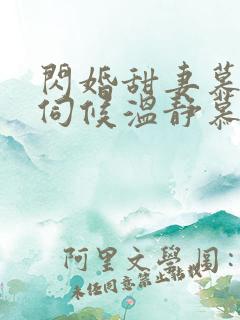 閃婚甜妻慕
伺候溫靜慕
阿里文學網:
未任同意禁止轉載